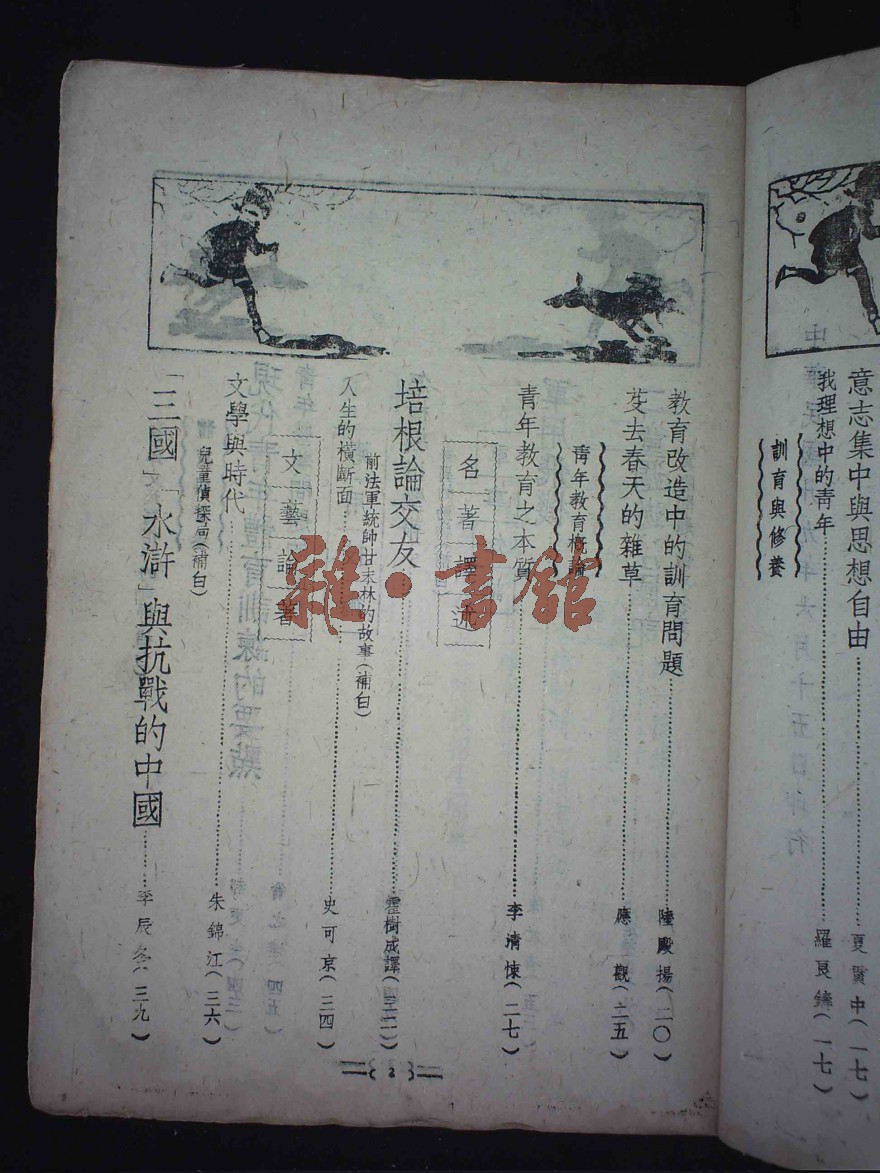 意志集中與思想自由⋯⋯夏賈中(一七)
我理想中的青年⋯⋯羅良鑄(一七)
訓育與修養
教育改造中的訓育問題⋯⋯陸殿揚(二〇)
芟去春天的雜草⋯⋯應觀(二五)
青年教育概論
青年教育之本質⋯⋯李清悚(二七)
名著譯述
培根論交友⋯⋯霍樹成譯(三二)
前法軍統帥甘末林的故事(補白)
人生的橫斷面⋯⋯史可京(三四)
文藝論著
文學與時代⋯⋯朱錦江(三六)
兒童偵探局(補白)
「三國」「水滸」與抗戰的中國⋯⋯李辰冬(三九)
2
雜·書館